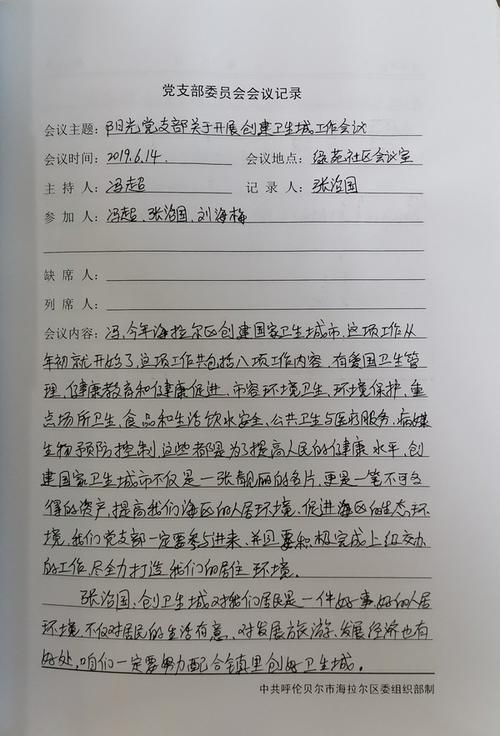 党支部委员会会议记录
会议主题：阳光党支部关于开展创建卫生城工作会议
会议时间：2019.6.14. 会议地点：绿苑社区会议室
主持人：冯超 记录人：张治国
参加人：冯超、张治国、刘海梅
缺席人：
列席人：
会议内容：冯，今年海拉尔区创建国家卫生城市，这项工作从
年初就开始了，这项工作共包括八项工作内容，有爱国卫生管
理，健康教育和健康促进，市容环境卫生，环境保护，重
点场所卫生，食品和生活饮水安全，公共卫生与医疗服务，病媒
生物预防控制，这些都是为了提高人民的健康水平，创
建国家卫生城市不仅是一张靓丽的名片，更是一笔不可多
得的资产，提高我们海区的人居环境，促进海区的生态环
境，我们党支部一定要参与进来，并且要积极完成上级交办
的工作，尽全力打造我们的居住环境。
张治国，创卫生城对我们居民是一件好事，好的人居
环境，不仅对居民的生活有意，对发展旅游，发展经济也有
好处，咱们一定要努力配合镇里创好卫生城。
中共呼伦贝尔市海拉尔区委组织部制